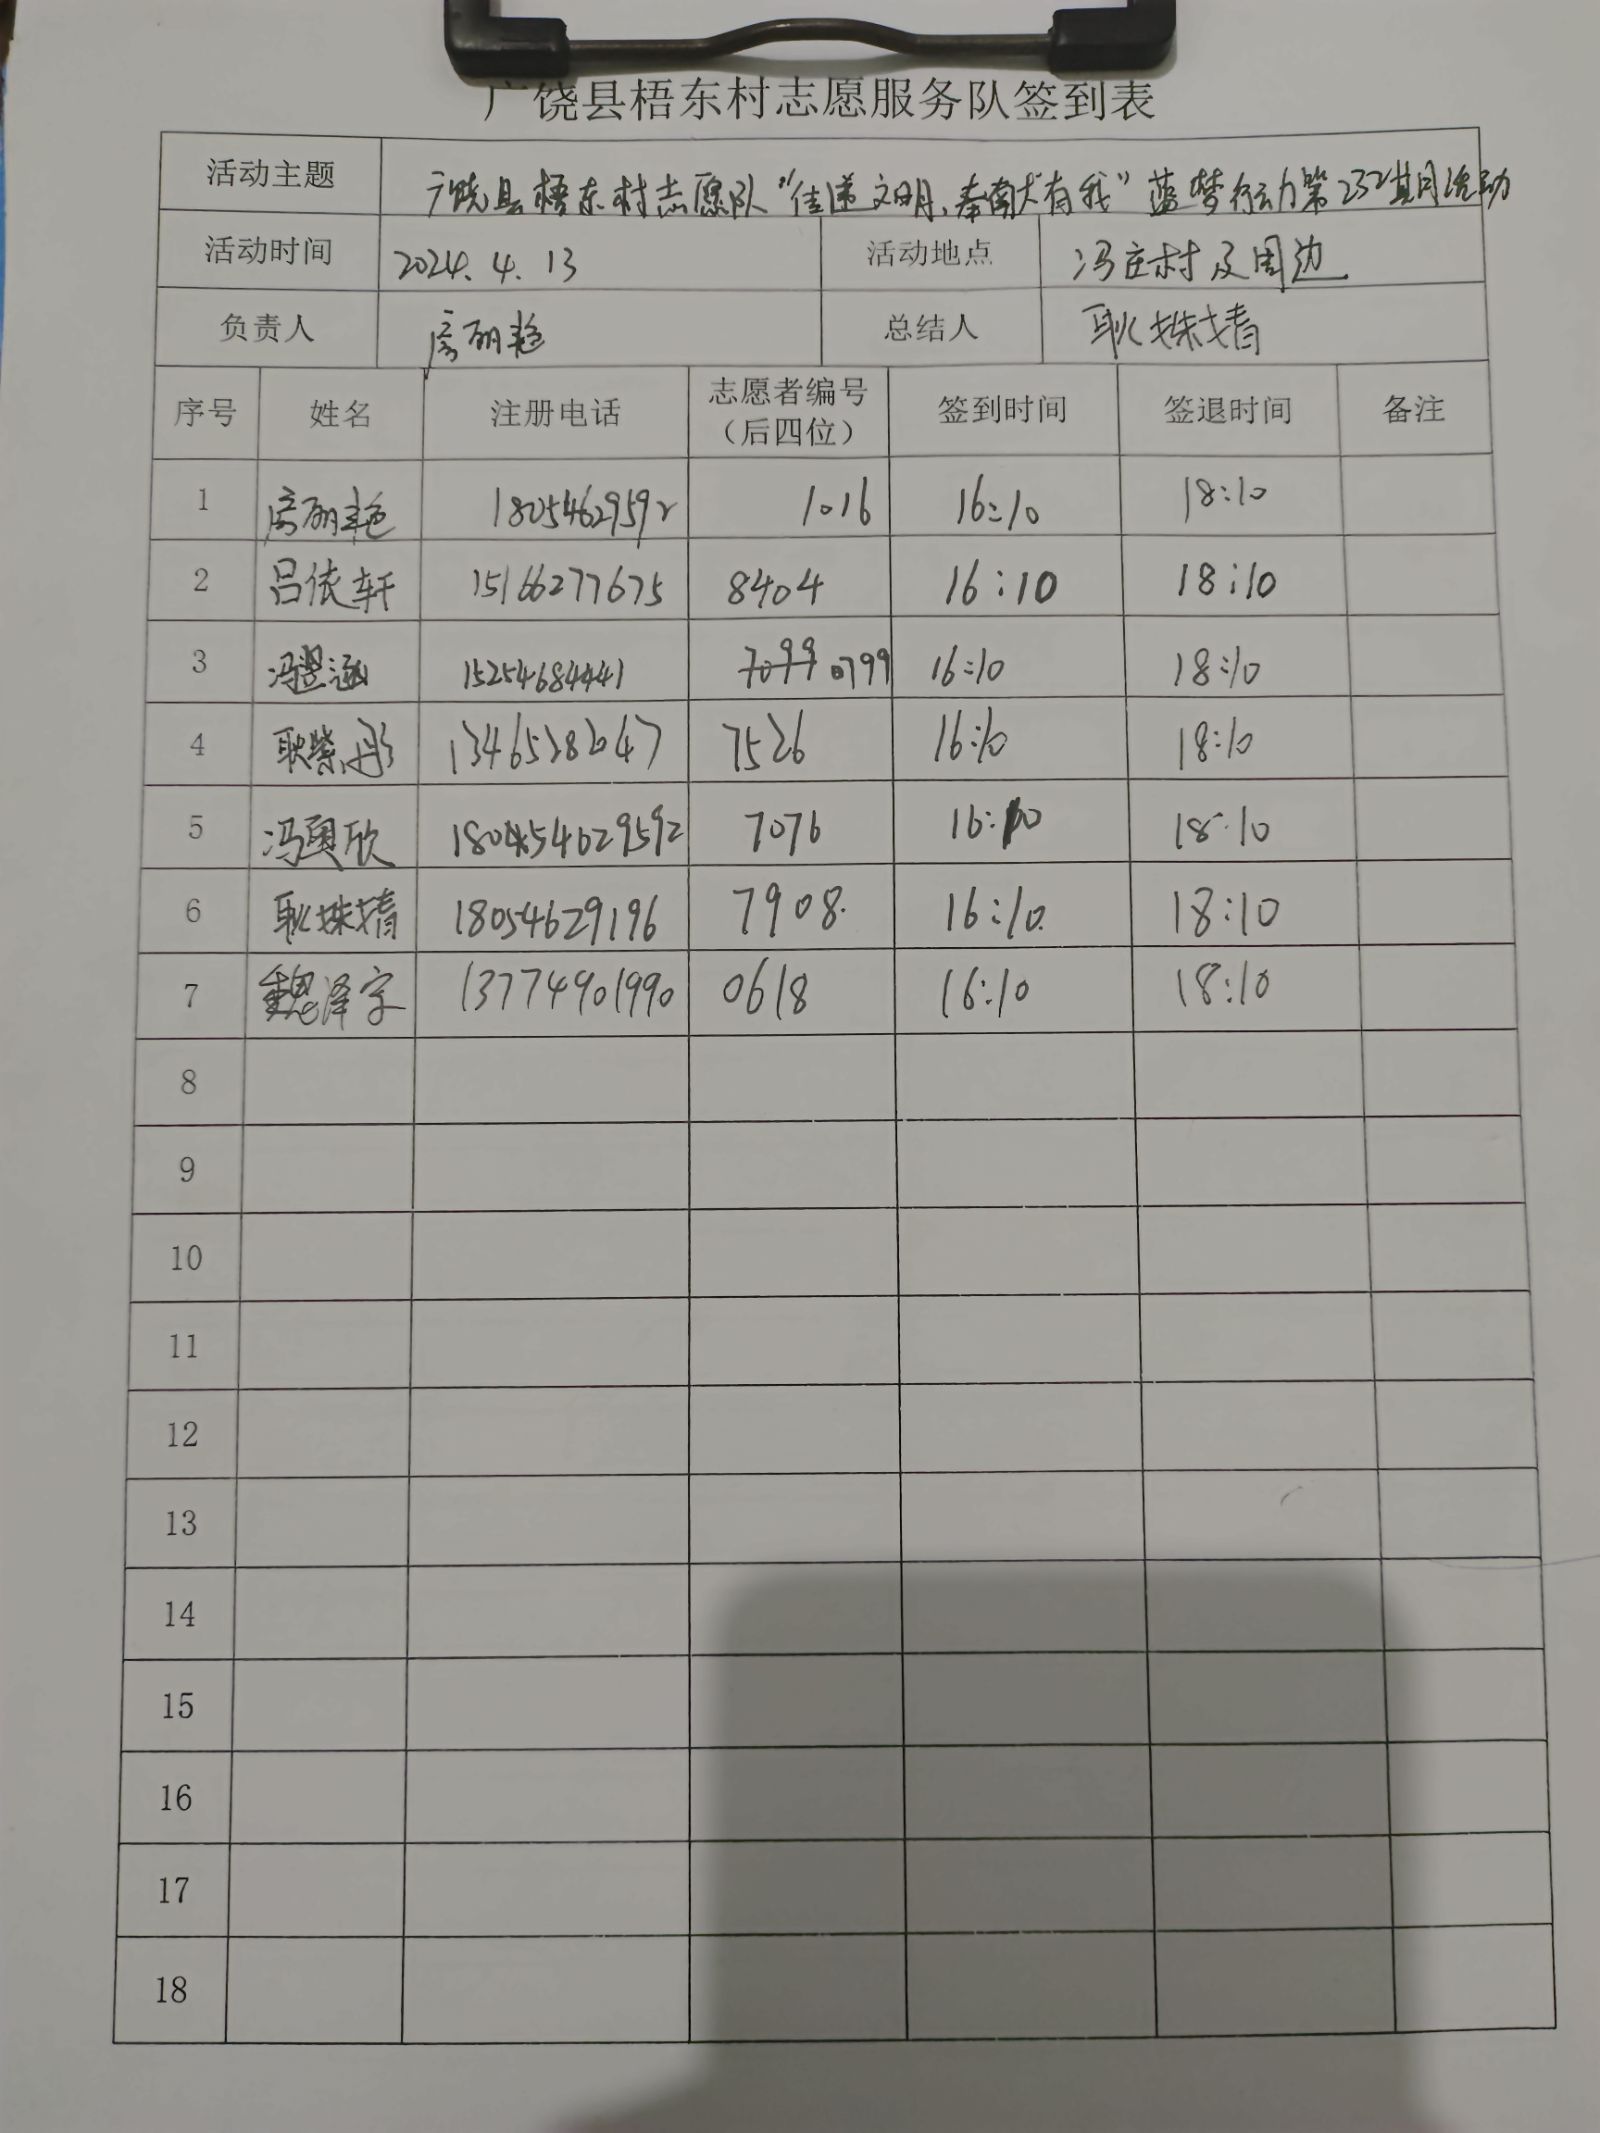 广饶县梧东村志愿服务队签到表
活动主题 广饶县梧东村志愿队“传递文明,奉献有我”蓝梦行动第232期活动
活动时间 2024.4.13 活动地点 冯庄村及周边
负责人 房丽艳 总结人 耿姝婧
序号 姓名 注册电话 志愿者编号 签到时间 签退时间 备注
(后四位)
1 房丽艳 18054629592 1016 16:10 18:10
2 吕依轩 15166277675 8404 16:10 18:10
3 冯昱涵 15254684441 7099 0799 16:10 18:10
4 耿紫彤 13465282647 7526 16:10 18:10
5 冯奥欣 18054629592 7076 16:10 18:10
6 耿姝婧 18054629196 7908. 16:10. 18:10
7 魏泽宇 13774901990 0618 16:10 18:10
8
9
10
11
12
13
14
15
16
17
18